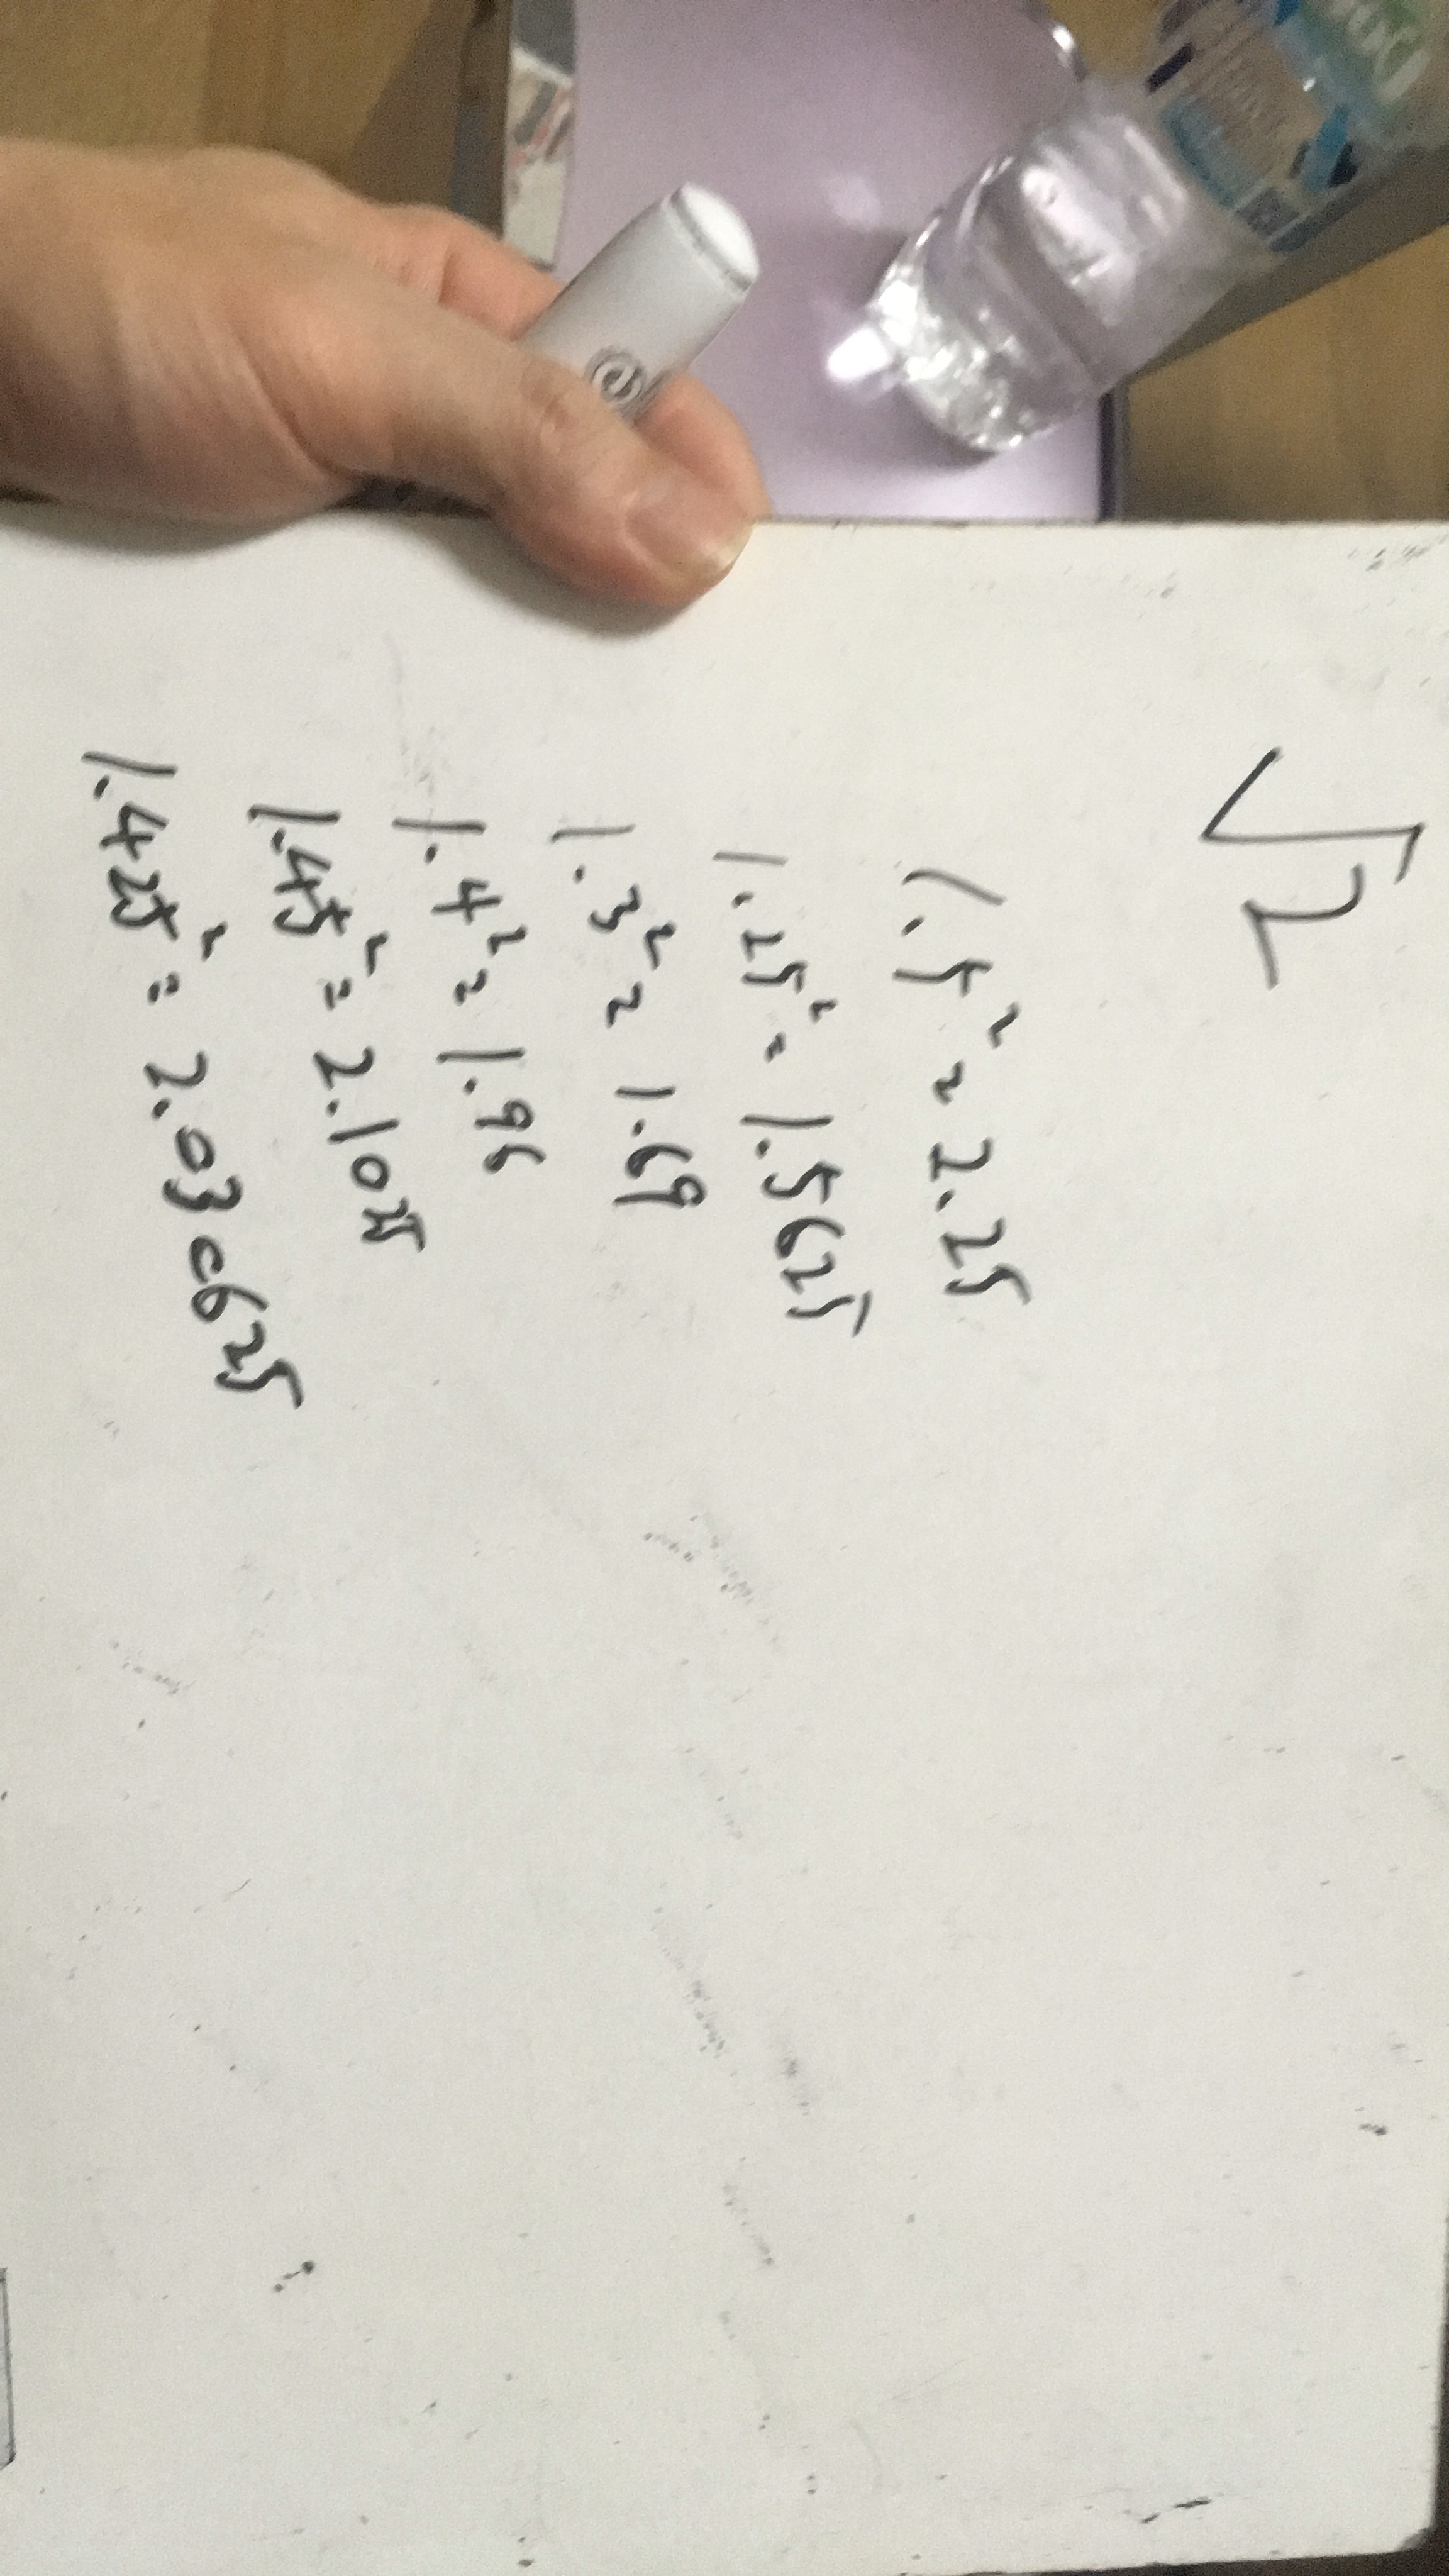 √2
1.5² = 2.25
1.25² = 1.5625
1.3² = 1.69
1.4² = 1.96
1.45² = 2.1025
1.425² = 2.030625